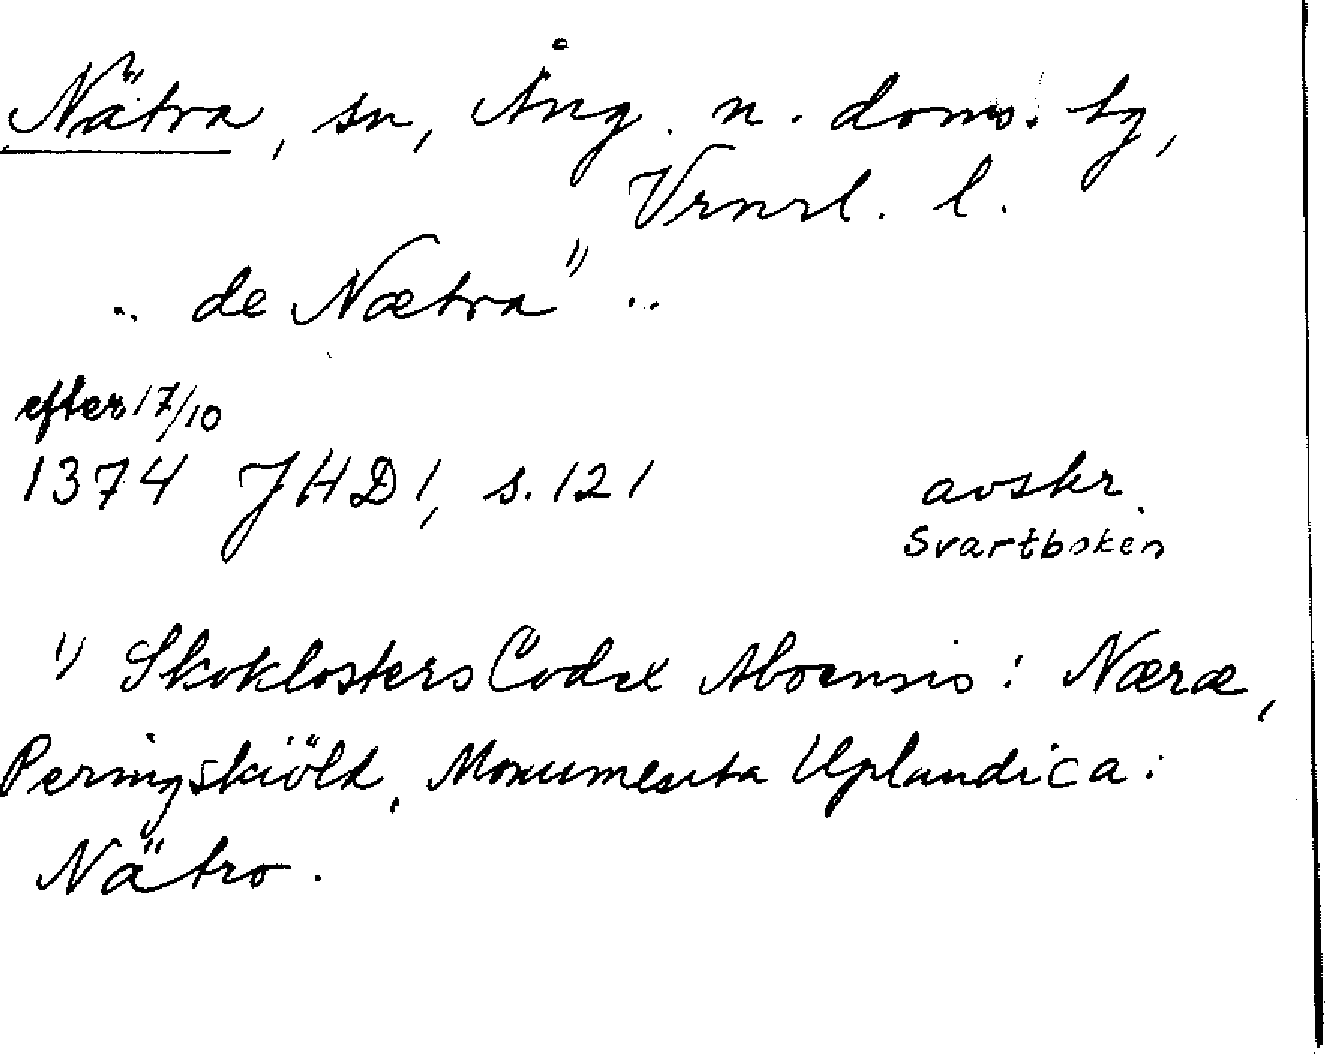 Nätra, sn, Ång. n. doms. tg,
Vrnrl. l.
.. de Nætra 1) ..
efter 17/10
1374 JHD 1, s. 121 avskr.
Svartboken
1) Skoklosters Codex Aboensis: Næræ,
Peringskiöld, Monumenta Uplandica:
Nätro.